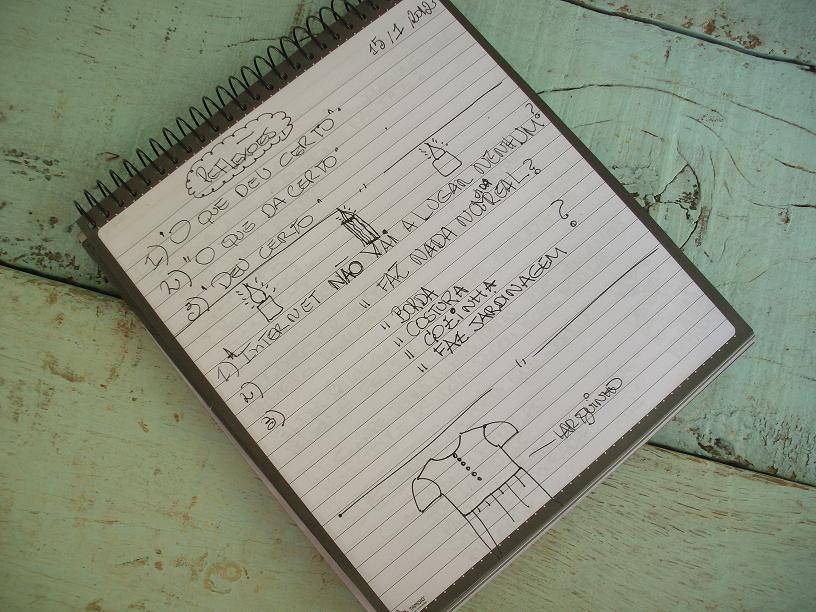 15/1 2012
REFLEXÕES
1) "O QUE DEU CERTO"
2) "O QUE DÁ CERTO"
3) "DEU CERTO"
1) A INTERNET NÃO VAI A LUGAR NENHUM?
2) " FAZ NADA NO REAL?
3) " BORDA
" COSTURA
" COZINHA
" FAZ JARDINAGEM ?